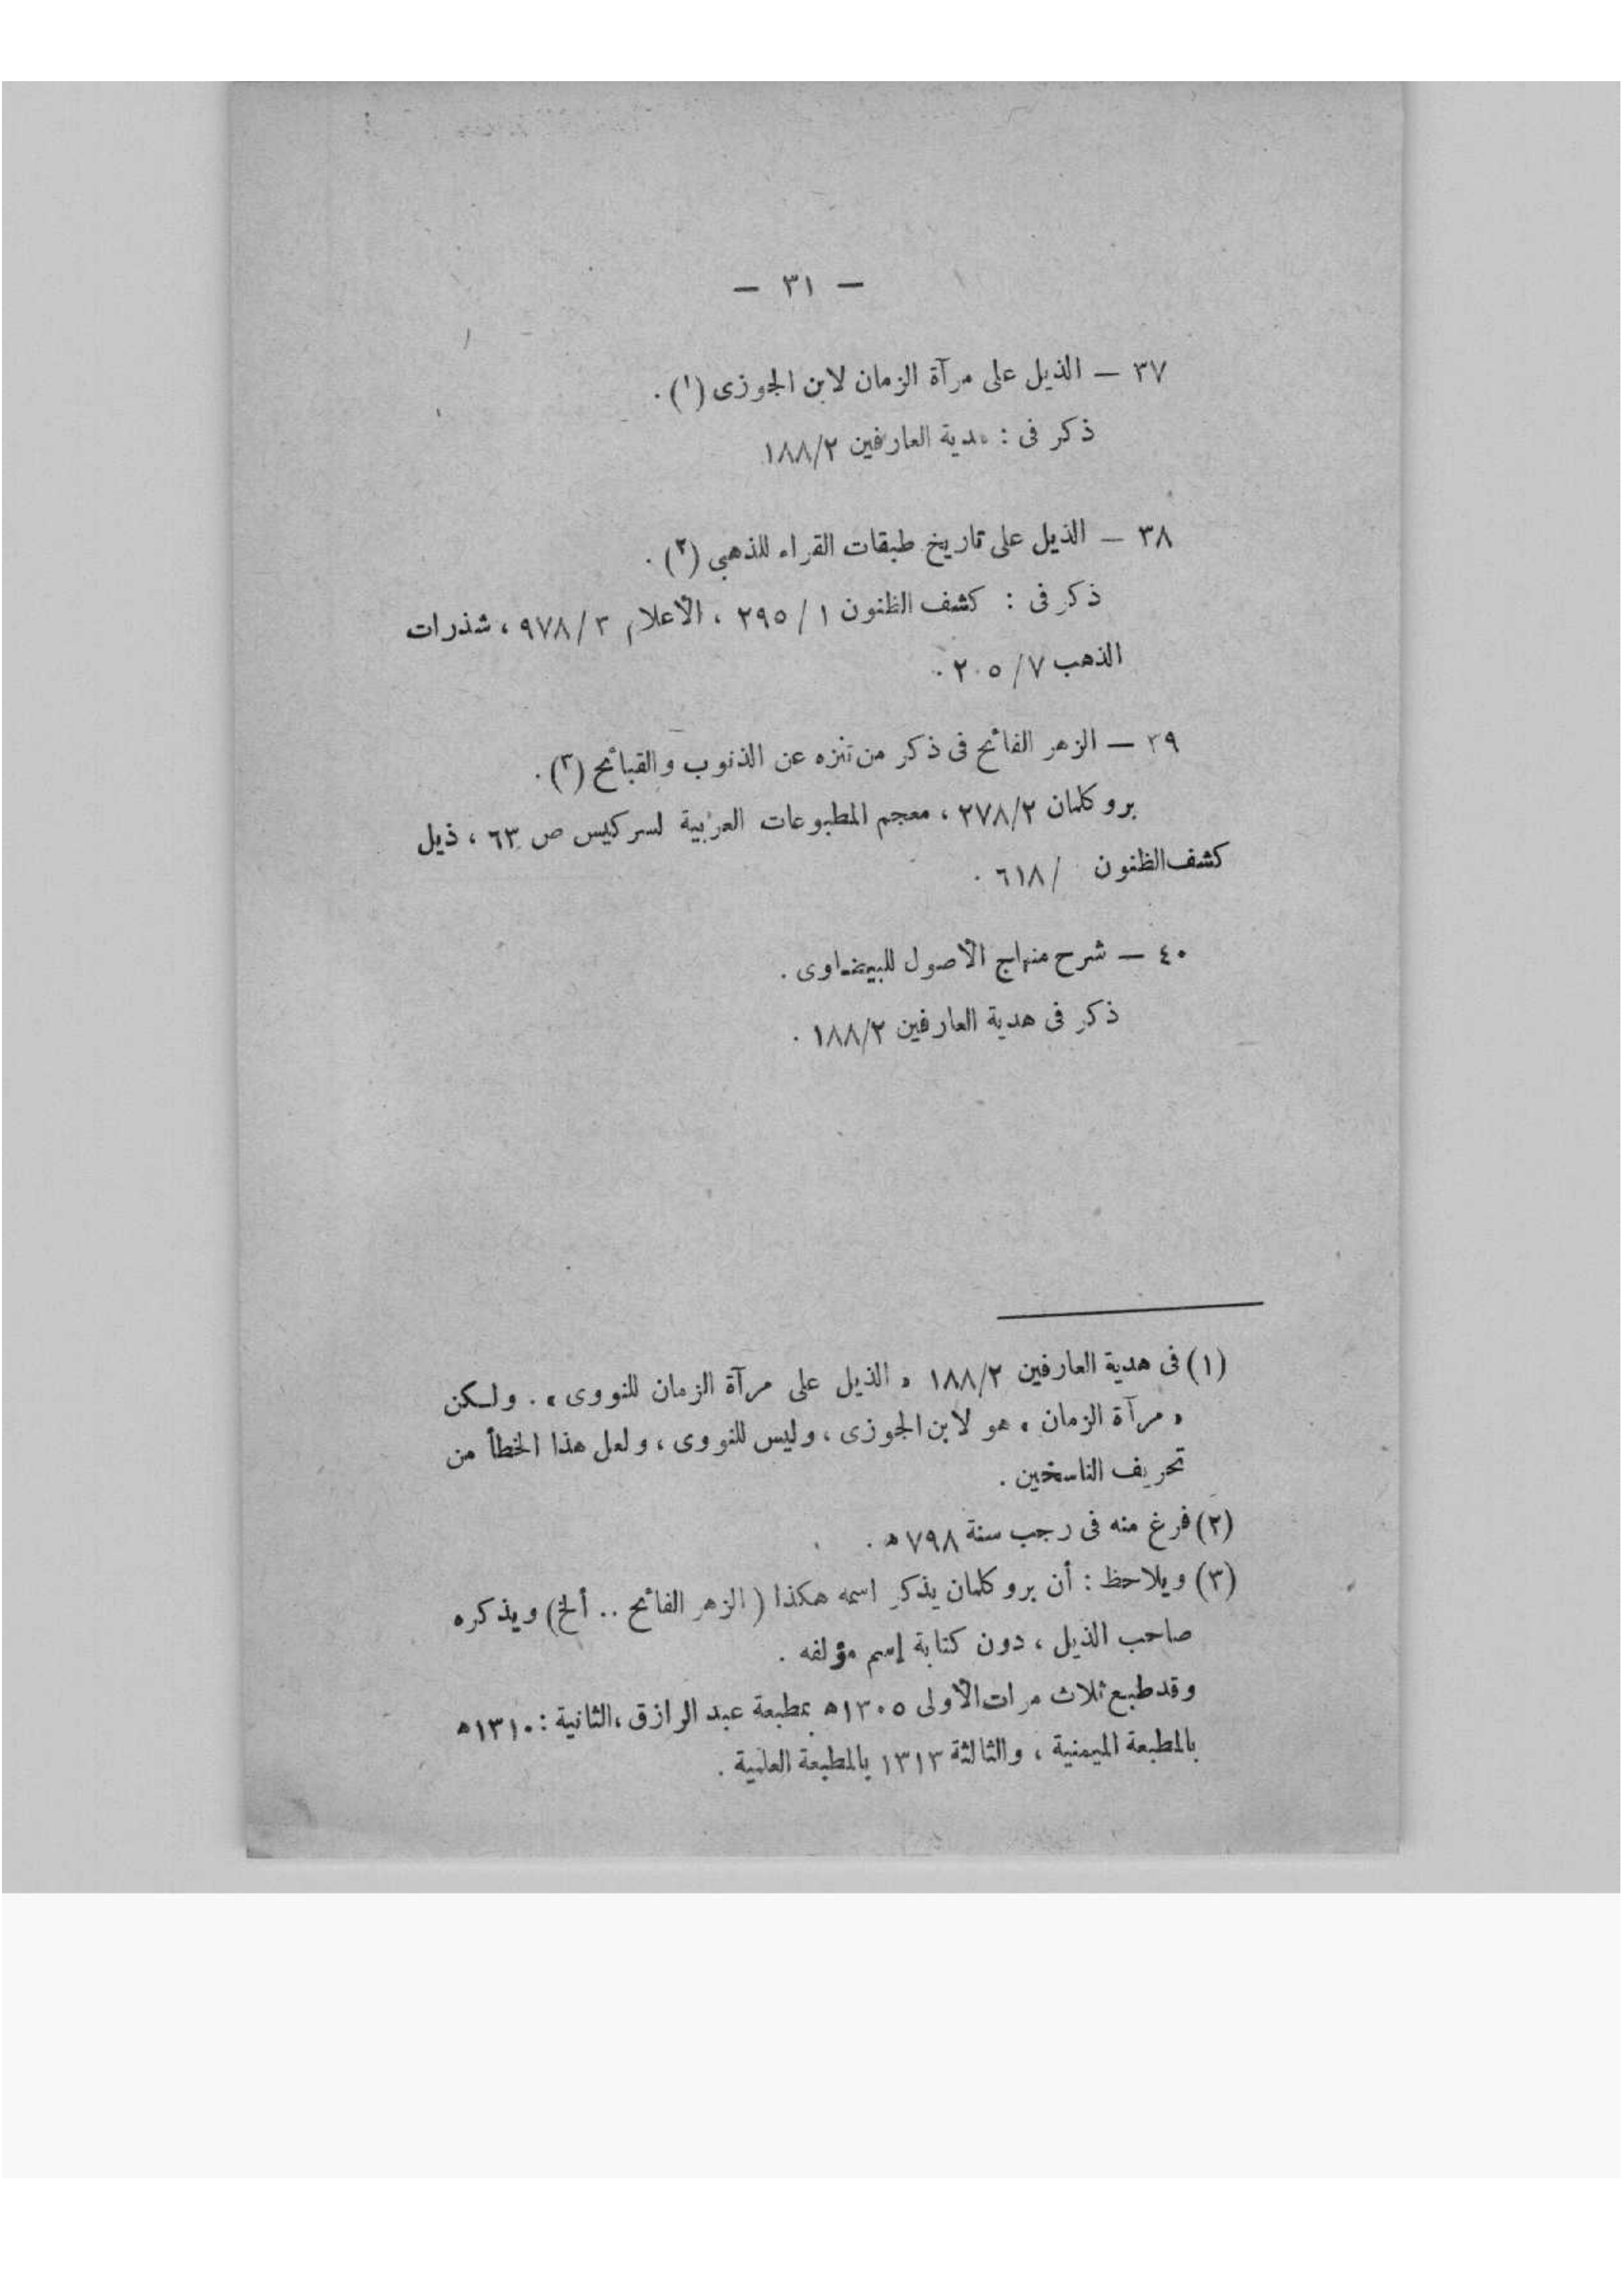 — ٣١ —
٣٧ — الذيل على مرآة الزمان لابن الجوزى (١) .
ذكر فى : هدية العارفين ١٨٨/٢
٣٨ — الذيل على تاريخ طبقات القراء للذهبى (٢) .
ذكر فى : كشف الظنون ١ / ٢٩٥ ، الأعلام ٣ / ٩٧٨ ، شذرات
الذهب ٧ / ٢٠٥ .
٣٩ — الزهر الفائح فى ذكر من تنزه عن الذنوب والقبائح (٣) .
بروكلمان ٢٧٨/٢ ، معجم المطبوعات العربية لسركيس ص ٦٣ ، ذيل
كشف الظنون / ٦١٨ .
٤٠ — شرح منهاج الأصول للبيضاوى .
ذكر فى هدية العارفين ١٨٨/٢ .
(١) فى هدية العارفين ١٨٨/٢ « الذيل على مرآة الزمان للنووى » . ولكن
« مرآة الزمان » هو لابن الجوزى ، وليس للنووى ، ولعل هذا الخطأ من
تحريف الناسخين .
(٢) فرغ منه فى رجب سنة ٧٩٨ ه .
(٣) ويلاحظ : أن بروكلمان يذكر اسمه هكذا ( الزهر الفائح .. ألخ) ويذكره
صاحب الذيل ، دون كتابة إسم مؤلفه .
وقد طبع ثلاث مرات الأولى ١٣٠٥ه بمطبعة عبد الرازق ، الثانية : ١٣١٠ه
بالمطبعة الميمنية ، والثالثة ١٣١٣ بالمطبعة العلمية .